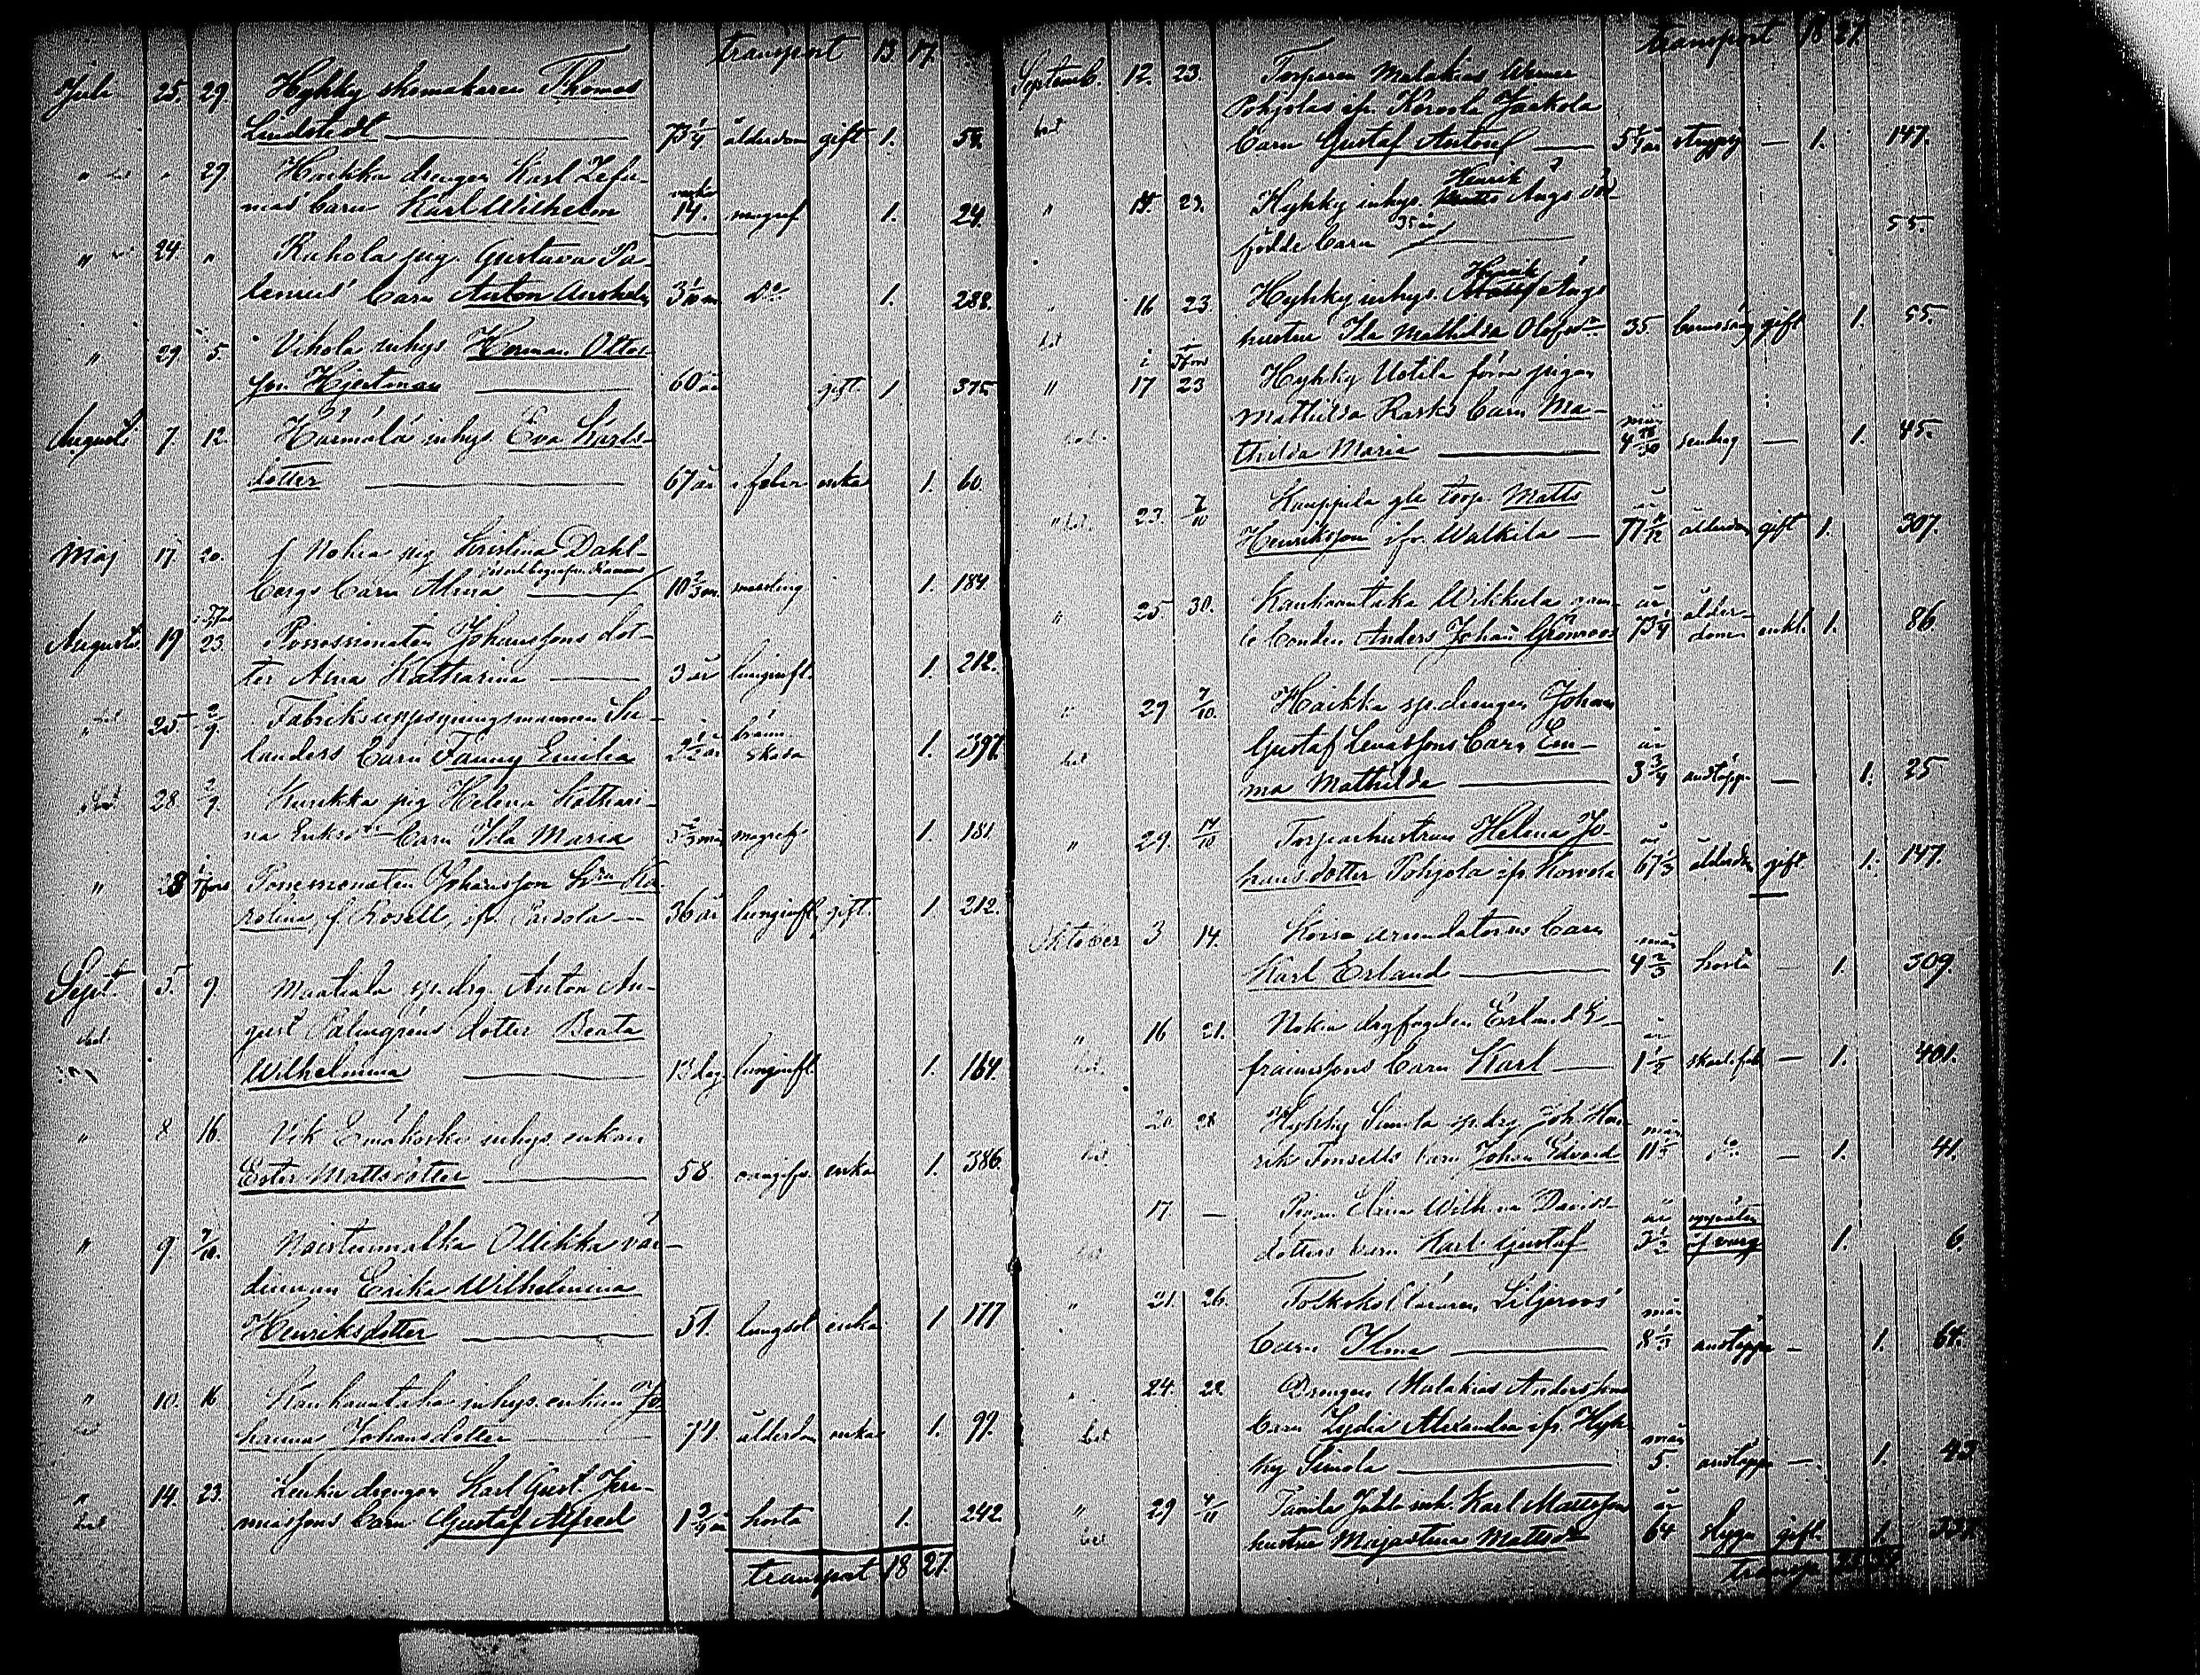 transport 13 17.
Juli 25. 29. Hyhky skomakaren Thomas
Lindstedt 73 1/4 ålderdom gift 1. 58.
" " 29 Haikka drengen Karl Zefa-
nias barn Karl Wilhelm 14. magref 1. 24.
" 24 " Kahola pig. Gustava Sa-
lenius' barn Anton Anshelm 3 1/10 m do 1. 288.
" 29 5. Vihola inhys. Herman Ottos-
son Hjertman 60 år gift 1 375
Augusti 7. 12. Härmälä inhys. Eva Karls-
dotter 67 år feber enka 1. 60
Maj 17. 20. Nokia pig Kristina Dahl-
bergs barn Alma 10 2/3 m. messling 1. 184.
Augusti 19 23. Possessionaten Johanssons dot-
ter Aina Katharina 3 år lunginfl. 1. 212.
" 25 2/9 Fabriksuppsyningsmannen Su-
landers barn Fanny Emilia 2 1/2 år bränn-
skada 1. 397.
28 2/9. Kurikka pig Helena Kathari-
na Eriksdr barn Ida Maria 5 2/3 mån magref 1. 181
" 28 Possessionaten Johansson hru Ka-
rolina, f. Rosell, ifr. 36 år lunginfl. gift. 1 212.
Sept. 5. 9. Maatiala sp.drg. Anton Au-
gust Palmgrens dotter Beata
Wilhelmina 13 dag lunginfl 1. 164.
" 8 16. Vik Emäkoski inhys. enkan
Ester Mattsdotter 58. enka 1. 386.
" 9. 7/10. Noistenmalka Ollikka vär-
dinnan Erika Wilhelmina
Henriksdotter 51. lungsot enka 1 177
" 10. 16 Kankaantaka inhys. enkan Jo-
hanna Johansdotter 74. ålderdom enka 1. 99.
" 14. 23. drengen Karl Gust. Jere-
miassons barn Gustaf Alfred 1 3/4 år hosta 1. 242
transport 18 27.
transport 18 27
Septemb. 12. 23. Torparen Malakias Werner
Pohjolas ifr. Korvola Jaakola
barn Gustaf Anton 5 år strypsj. — 1. 147.
" 15. 23. Hyhky inhys. Henrik Augs död-
födde barn 55.
" 16 23. Hyhky inhys. Henrik Augs
hustru Ida Mathilda Olofsdr 35 barnsäng gift 1. 55.
" 17 23 Hyhky Uotila förra pigan
Mathilda Rasks barn Ma-
thilda Maria 4 mån sendrag — 1. 45.
" 23. 7/10 Kauppila gle torp. Matts
Henriksson ifr. Walkila 77 ålderdom gift 1. 307.
" 25 30. Kankaantaka Wihkula gam-
le bonden Anders Johan Grönroos 73 1/4 ålder-
dom enkl. 1. 86
" 29 7/10. Haikka sp.drengen Johan
Gustaf Lenassons barn Em-
ma Mathilda 3 3/4 andtäppa — 1. 25
" 29. 14/10 Torparhustrun Helena Jo-
hansdotter Pohjola ifr Korvola 67 1/3 ålderdom gift 1. 147.
Oktober 3 14. Korva arrendatorns barn
Karl Erland 4 2/3 hosta — 1. 309.
" 16 21. Nokia dagfogden Erland E-
fraimssons barn Karl 1 1/2 skarl.feb — 1. 401.
20. 28 Hyhky Simola sp.drg Joh. Hen-
rik Fonsells barn Johan Edvard 11 1/2 do — 1. 41.
17 — Pigan Wilh:na Davids-
dotters barn Karl Gustaf 3 1/2 uppäten
af varg 1. 6.
" 21. 26. Folkskolläraren Liljeroos'
barn Ilma 8 1/3 andtäppa — 1. 64.
" 24. 28. Drengen Malakias Anderssons
barn Lydia Alexandra ifr Hyh-
ky Simola 5. andtäppa — 1. 43
" 29 4/11 Juhola inh. Karl Mattssons
hustru Majastina Mattsdr 64 slag gift. 1.
transp.